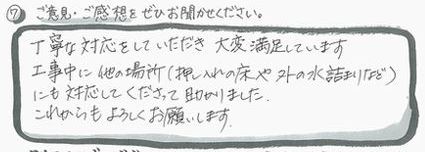 ⑦ ご意見・ご感想をぜひお聞かせください。
丁寧な対応をしていただき 大変満足しています
工事中に他の場所(押し入れの床や外の水詰まりなど)
にも対応してくださって助かりました.
これからもよろしくお願いします.